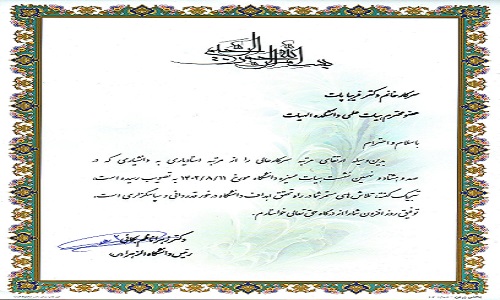 بسم الله الرحمن الرحیم
سرکار خانم دکتر فریبا پات
عضو محترم هیات علمی دانشکده الهیات
با سلام و احترام
بدین وسیله ارتقای مرتبه سرکارعالی را از مرتبه استادیاری به دانشیاری که در
صد و هشتاد و نهمین نشست هیات ممیزه دانشگاه مورخ ۱۴۰۲/۸/۱۱ به تصویب رسیده است،
تبریک گفته، تلاش های مستمر شما در راه تحقق اهداف دانشگاه در خور قدردانی و سپاسگزاری است.
توفیق روز افزون شما را از درگاه حق تعالی خواستارم.
دکتر زهرا ناظم بکائی
رئیس دانشگاه الزهرا(س)